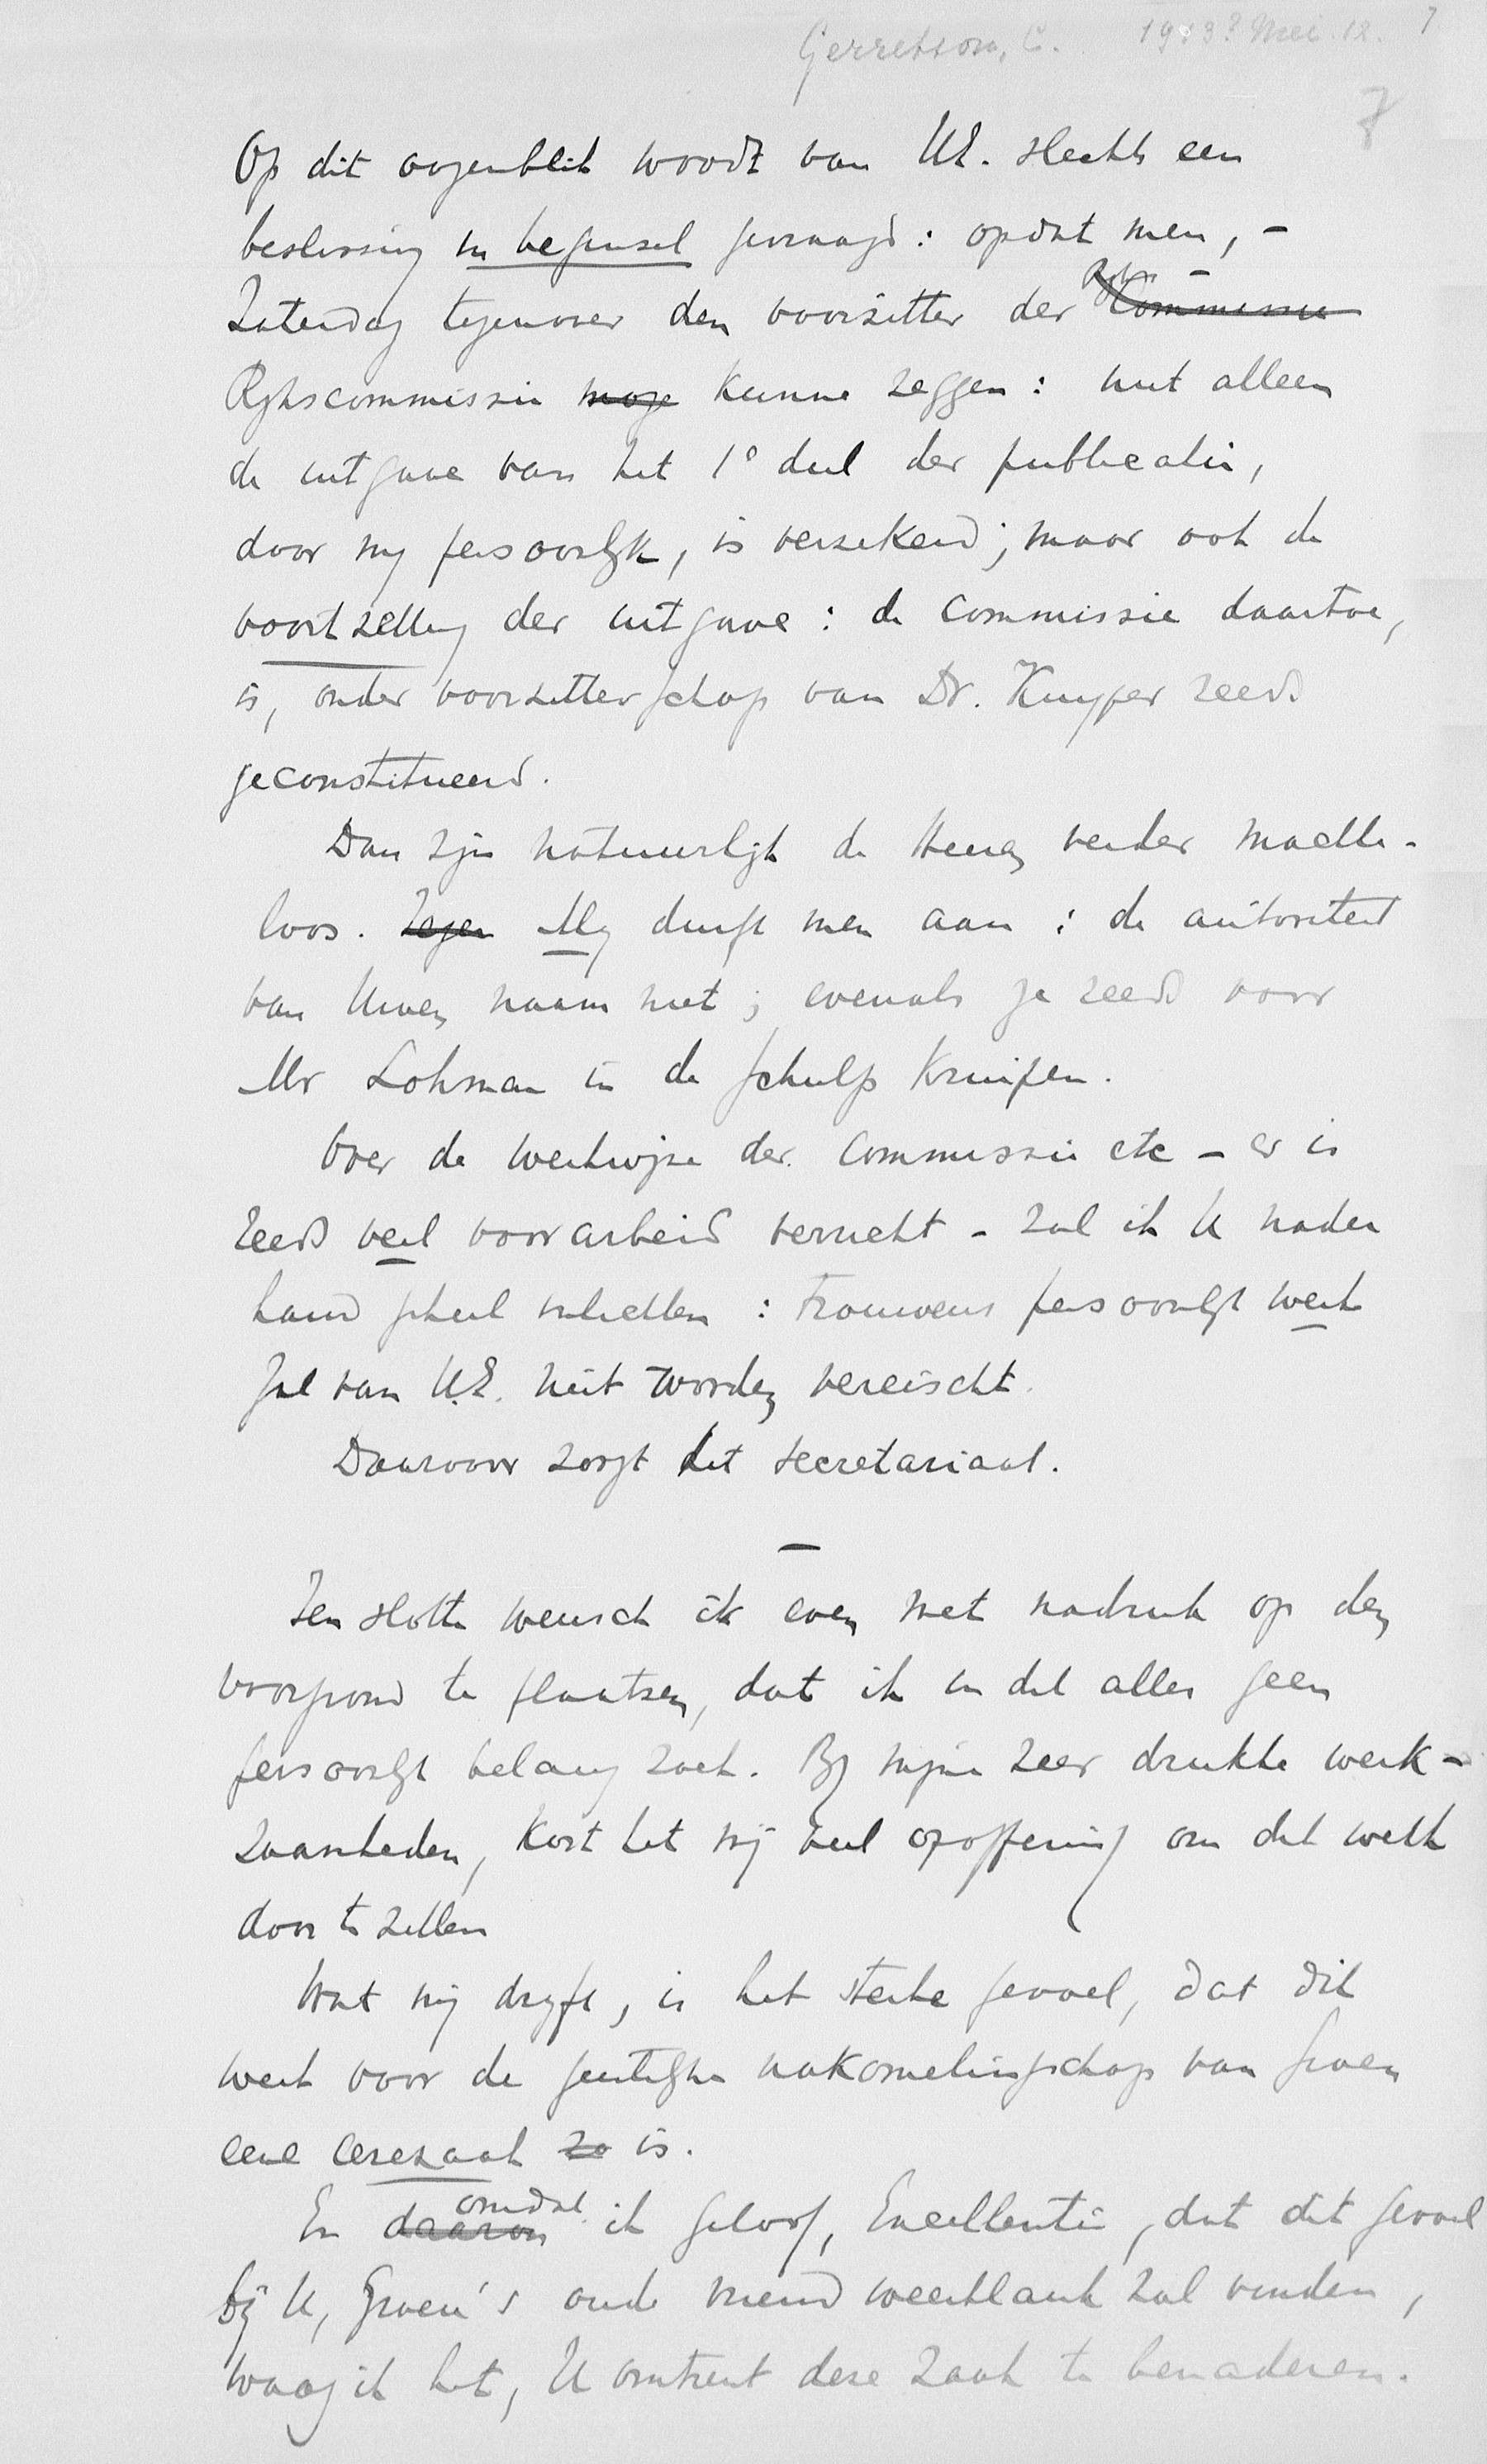 Gerretson, C. 1913? Mei. 12. 7
7
Op dit oogenblik wordt van UE. slechts een
beslissing in beginsel gevraagd: opdat men, -
Zaterdag tegenover den voorzitter der Commissie
Rijkscommissie moge kunne zeggen: niet alleen
de uitgave van het 1e deel der publicatie,
door mij persoonlijk, is verzekerd; maar ook de
voortzetting der uitgave: de commissie daartoe,
is, onder voorzitterschap van Dr. Kuyper reeds
geconstitueerd.
Dan zijn natuurlijk de Heeren verder machte-
loos. Tegen Mij durft men aan: de autoriteit
van Uwen naam niet; evenals ze reeds voor
Mr Lohman in de schulp kruipen.
Over de werkwijze der commissie etc - er is
reeds veel voorarbeid verricht - zal ik U nader
hand geheel inlichten: trouwens persoonlijk werk
zal van U.E. niet worden vereischt.
Daarvoor zorgt het secretariaat.
—
Ten slotte wensch ik even met nadruk op den
voorgrond te plaatsen, dat ik in dit alles geen
persoonlijk belang zoek. Bij mijne zeer drukke werk-
zaamheden, kost het mij veel opoffering om dit werk
door te zetten
Wat mij drijft, is het sterke gevoel, dat dit
werk voor de geestelijke nakomelingschap van Groen
eene eerezaak zo is.
omdat
En daarom ik geloof, Excellentie, dat dit gevoel
bij U, Groen's oude vriend weerklank zal vinden,
waag ik het, U omtrent deze zaak te benaderen.